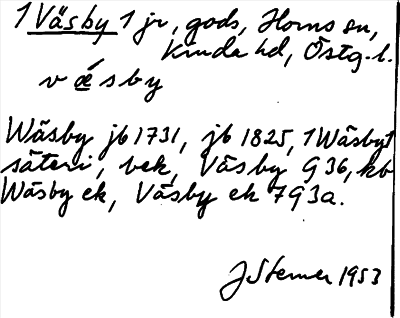 1 Väsby 1 jr, gods, Horns sn,
Kinda hd, Östg. l.
v ǽ s b y
Wäsby jb 1731, jb 1825, 1 Wäsby 1
säteri, bek, Väsby G 36, kb
Wäsby ek, Väsby ek 7 G 3a.
J Sterner 1953